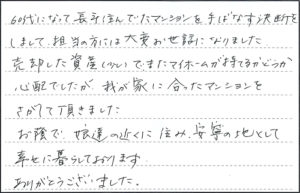 60代になって長年住んでたマンションを手ばなす決断を
しまして、担当の方には大変お世話になりました
売却した資産(少し)でまたマイホームが持てるかどうか
心配でしたが、我が家に合ったマンションを
さがして頂きました
お陰で娘達の近くに住み、安寧の地として
幸せに暮らしております
ありがとうございました。